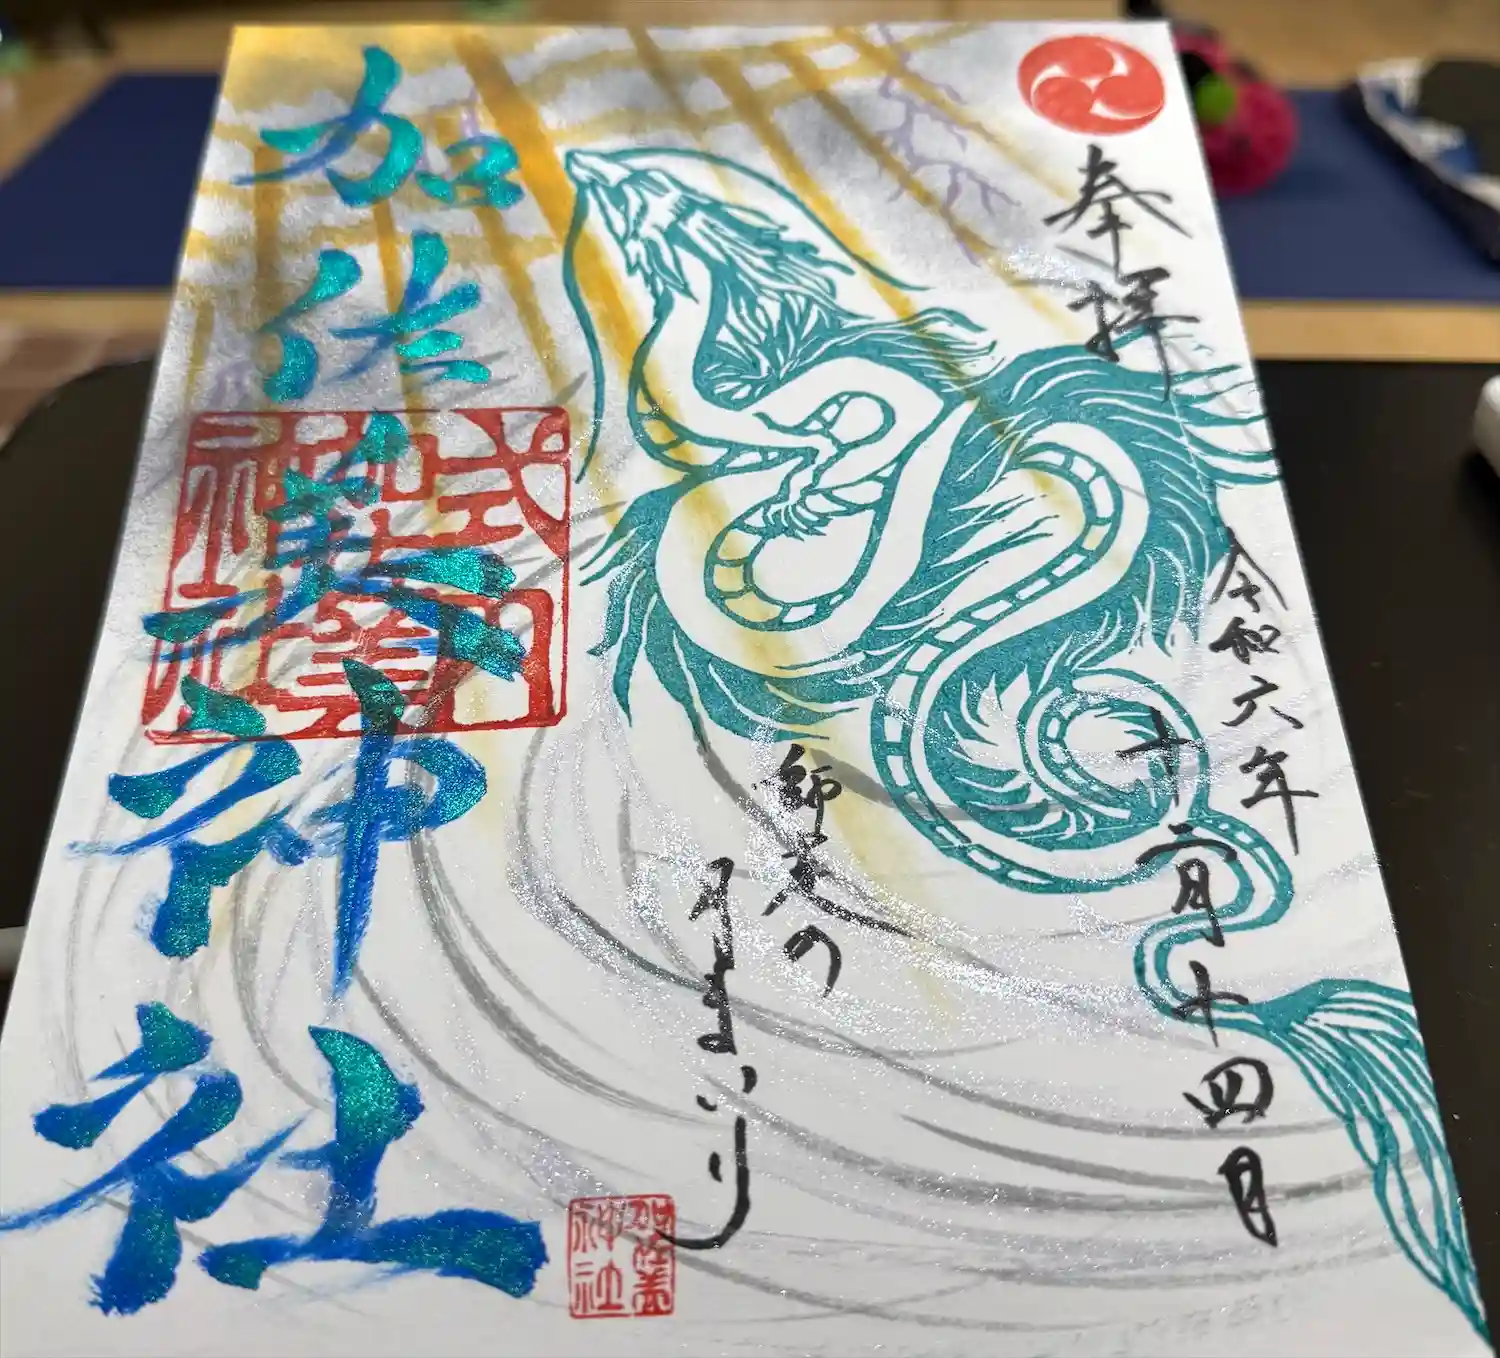 奉拝
令和六年
十二月十四日
師走の
月まいり
加佐美神社
式内
加佐美
神社
加佐美
神社